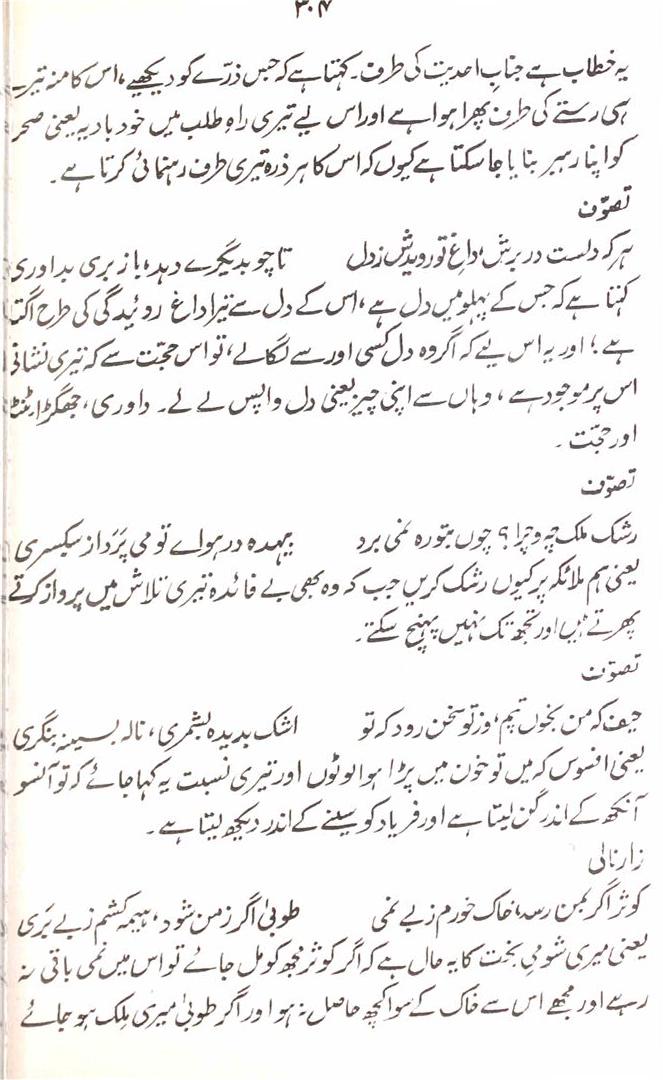 ۳۰۴
یہ خطاب ہے جناب احدیت کی طرف۔ کہتا ہے کہ جس ذرّے کو دیکھیے، اس کا منہ تیرے
ہی رستے کی طرف پھرا ہوا ہے اور اس لیے تیری راہِ طلب میں خود بادیہ یعنی صحرا
کو اپنا رہبر بنایا جا سکتا ہے کیوں کہ اس کا ہر ذرہ تیری طرف رہنمائی کرتا ہے۔
تصوّف
ہر کہ دلست در برش، داغِ تو رویدش ز دل تا چو بدیگرے دہد، باز بری بداوری
کہتا ہے کہ جس کے پہلو میں دل ہے، اس کے دل سے تیرا داغ روئیدگی کی طرح اگتا
ہے؛ اور یہ اس لیے کہ اگر وہ دل کسی اور سے لگا لے، تو اس حجت سے کہ تیری نشانی
اس پر موجود ہے، وہاں سے اپنی چیز یعنی دل واپس لے لے۔ داوری، جھگڑا، ٹنٹا
اور حجّت۔
تصوّف
رشک ملک چہ و چرا؟ چوں بتو رہ نمی برد بیہدہ در ہواے تو می پَرَد از سبکسری
یعنی ہم ملائکہ پر کیوں رشک کریں جب کہ وہ بھی بے فائدہ تیری تلاش میں پرواز کرتے
پھرتے ہیں اور تجھ تک نہیں پہنچ سکتے۔
تصوّف
حیف کہ من بخوں تپم، وز تو سخن رود کہ تو اشک بدیدہ بشمری، نالہ بسینہ بنگری
یعنی افسوس کہ میں تو خون میں پڑا ہوا لوٹوں اور تیری نسبت یہ کہا جائے کہ تو آنسو
آنکھ کے اندر گن لیتا ہے اور فریاد کو سینے کے اندر دیکھ لیتا ہے۔
زار نالی
کوثر اگر بمن رسد، خاک خورم ز بے نمی طوبیٰ اگر ز من شود، ہیمہ کشم ز بے بَری
یعنی میری شومیِ بخت کا یہ حال ہے کہ اگر کوثر مجھ کو مل جائے تو اس میں نمی باقی نہ
رہے اور مجھے اس سے خاک کے سوا کچھ حاصل نہ ہو اور اگر طوبیٰ میری مِلک ہو جائے